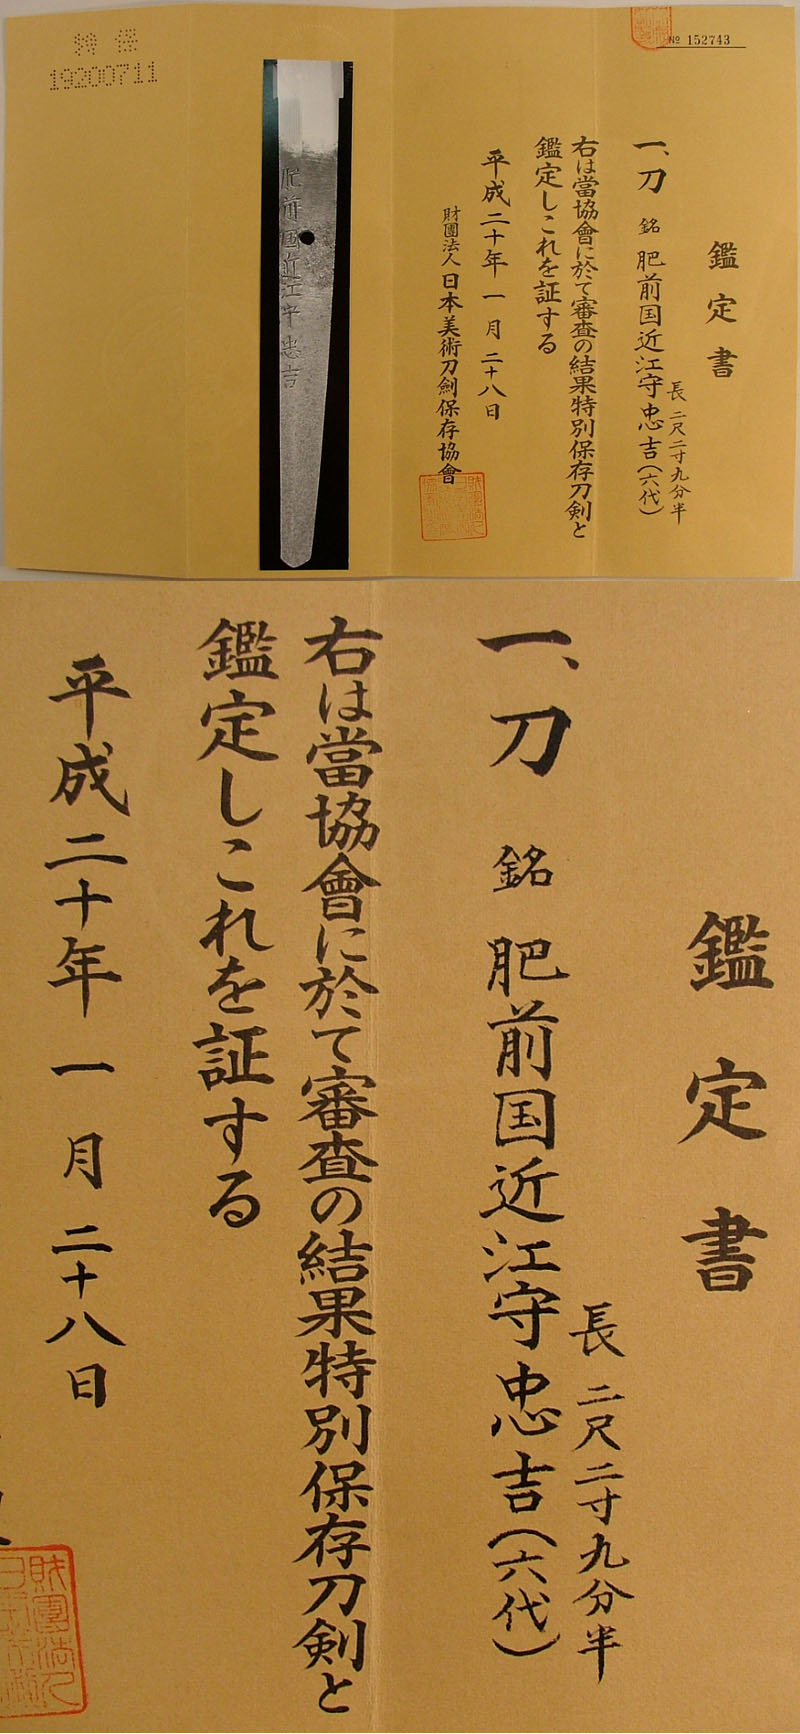 特保
19200711
№ 152743
鑑定書
一、刀 銘 肥前国近江守忠吉(六代)
長 二尺二寸九分半
右は當協會に於て審査の結果特別保存刀剣と
鑑定しこれを証する
平成二十年一月二十八日
財團法人 日本美術刀劍保存協會
肥前国近江守忠吉
鑑定書
一、刀 銘 肥前国近江守忠吉(六代)
長 二尺二寸九分半
右は當協會に於て審査の結果特別保存刀剣と
鑑定しこれを証する
平成二十年一月二十八日